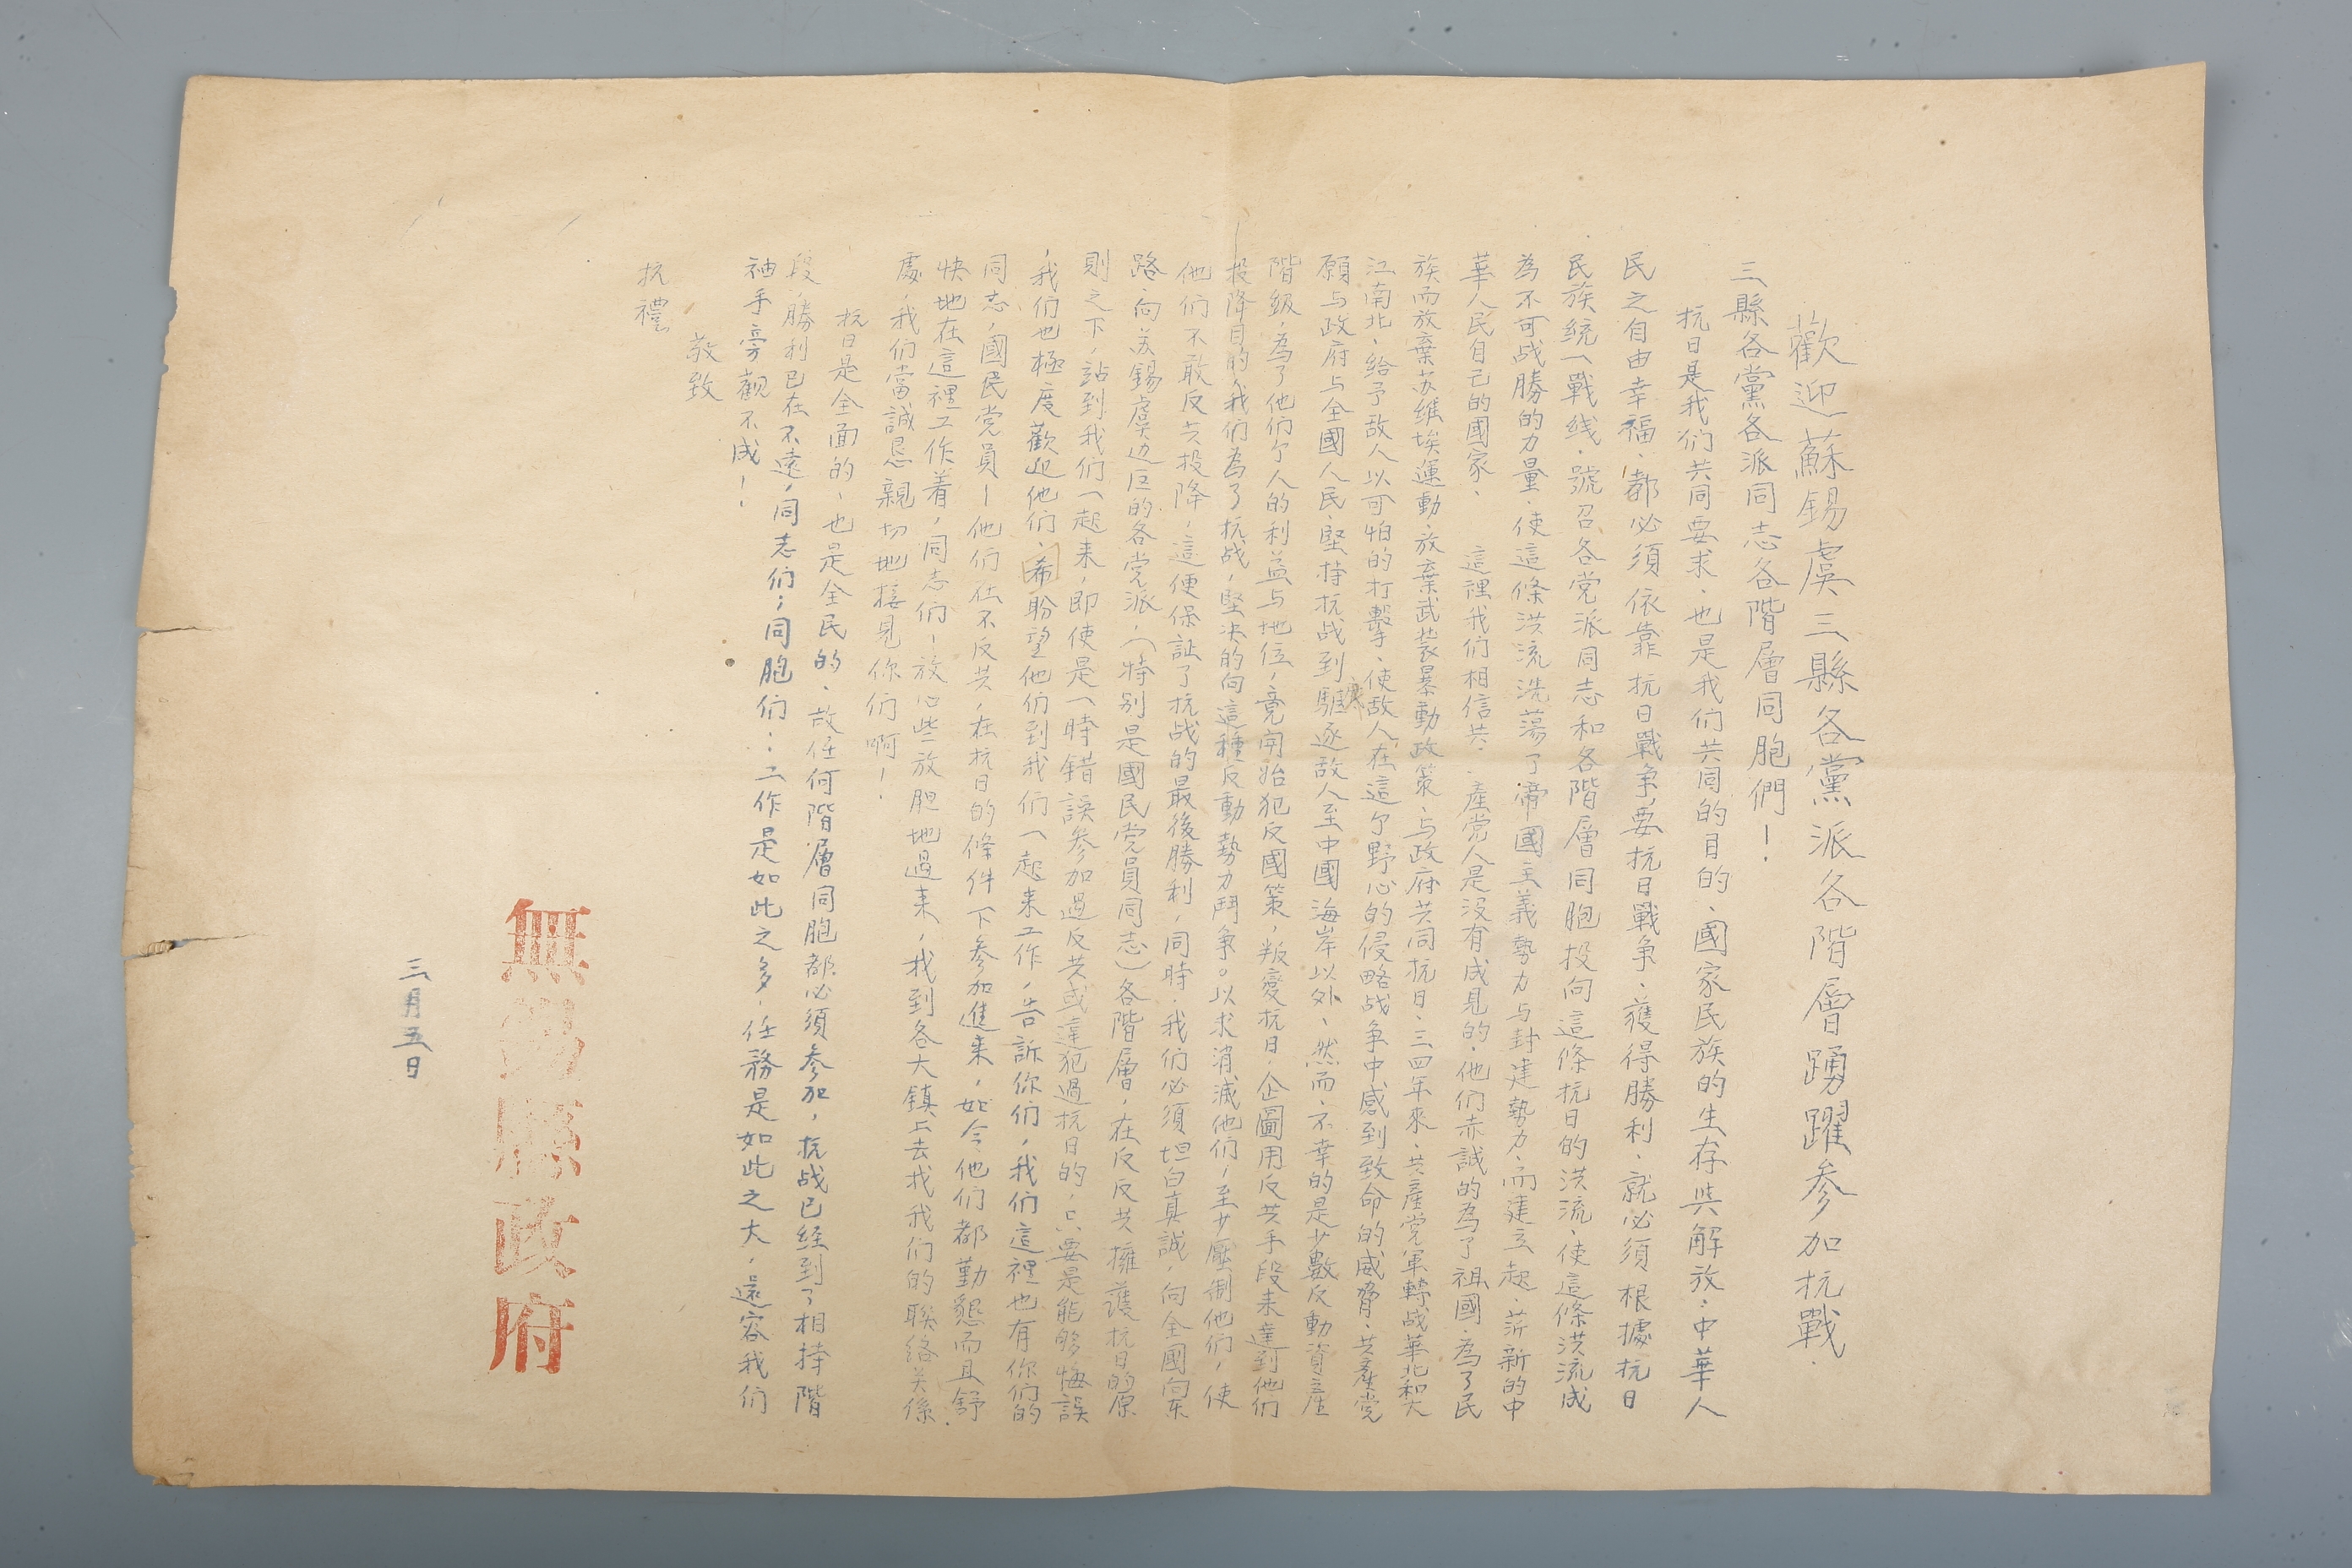 歡迎蘇錫虞三縣各黨派各階層踴躍参加抗戰.
三縣各黨各派同志各階層同胞們！
抗日是我们共同要求、也是我们共同的目的、國家民族的生存与解放、中華人
民之自由幸福、都必须依靠抗日戰争、要抗日戰争、獲得勝利、就必须根據抗日
民族統一戰线、號召各党派同志和各階層同胞投向這條抗日的洪流、使這條洪流成
為不可战勝的力量、使這條洪流洗蕩了帝國主義勢力与封建勢力、而建立起、新的中
華人民自己的國家、這裡我们相信共產党人是没有成見的、他们赤誠的為了祖國、為了民
族而放棄苏維埃運動、放棄武裝暴動政策、与政府共同抗日、三四年來、共產党軍轉战華北和大
江南北、给予敌人以可怕的打擊、使敌人在這个野心的侵略战争中感到致命的威脅、共產党
願与政府与全國人民、堅持抗战到驅逐敌人至中國海岸以外、然而、不幸的是少數反動資產
階級，為了他们个人的利益与地位，竟開始犯反國策，叛變抗日，企圖用反共手段来達到他们
投降目的，我们為了抗战，堅决的向這種反動勢力鬥争。以求消滅他们，至少壓制他们，使
他们不敢反共投降，這便保証了抗战的最後勝利，同時，我们必须坦白真誠，向全國向东
路、向苏錫虞边区的各党派，（特别是國民党員同志）各階層，在反反共擁護抗日的原
則之下，站到我们一起来，即使是一時錯誤参加過反共或違犯過抗日的，只要是能够悔誤
，我们也極度歡迎他们、希盼望他们到我们一起来工作，告訴你们，我们這裡也有你们的
同志，國民党員—他们在不反共，在抗日的條件下参加進来，如今他们都勤懇而且舒
快地在這裡工作着，同志们！放心些放胆地過来，我到各大镇上去我我们的联络关係
處，我们當誠恳親切地接見你们啊！
抗日是全面的、也是全民的、故任何階層同胞都必須参加，抗战已经到了相持階
段，勝利已在不遠，同志们；同胞们：工作是如此之多，任務是如此之大，還容我们
袖手旁觀不成！
敬致
抗禮
無錫縣政府
三月五日